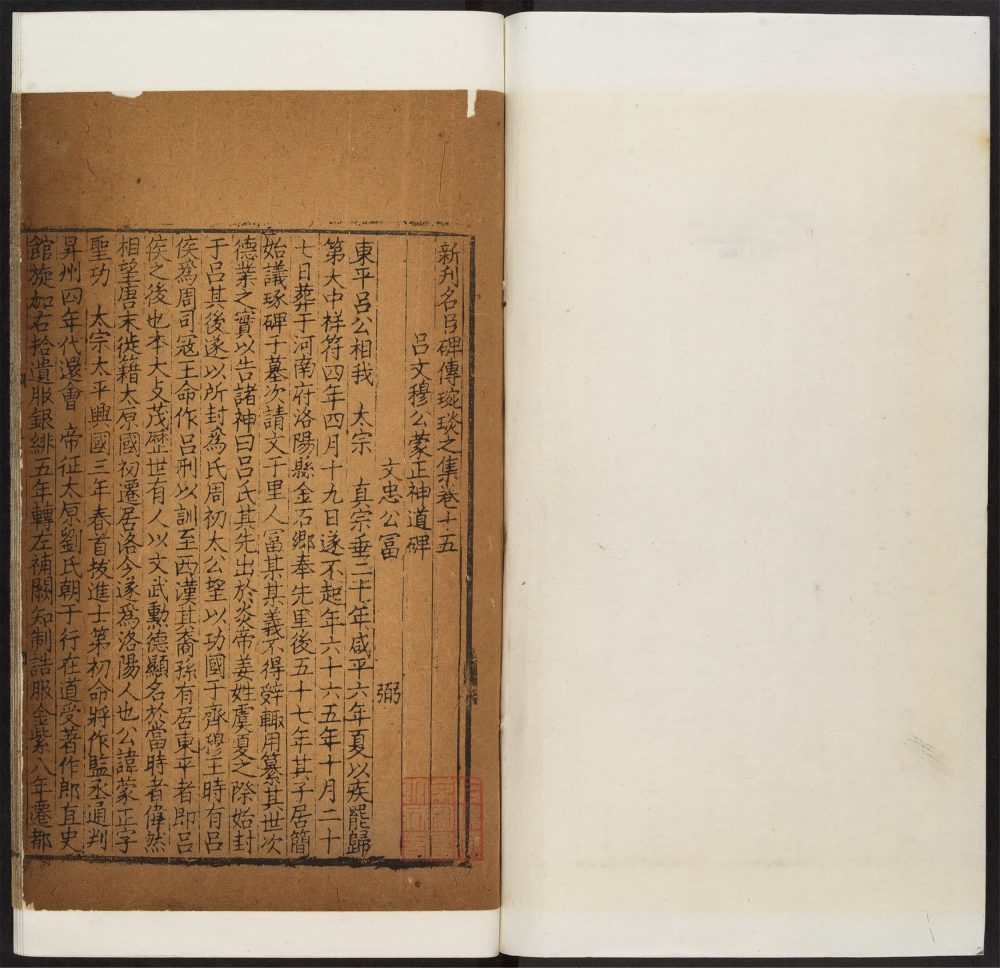 新刋名臣碑傳琬琰之集卷十五
吕文穆公蒙正神道碑
文忠公冨 弼
東平吕公相我 太宗 真宗垂二十年咸平六年夏以疾罷歸
第大中祥符四年四月十九日遂不起年六十六五年十月二十
七日葬于河南府洛陽縣金石鄉奉先里後五十七年其子居簡
始議琢碑于墓次請文于里人冨某某義不得辤輙用纂其世次
德業之實以告諸神曰吕氏其先出於炎帝姜姓虞夏之際始封
于吕其後遂以所封爲氏周初太公望以功國于齊穆王時有吕
侯爲周司冦王命作吕刑以訓至西漢其裔孫有居東平者即吕
侯之後也本大攴茂歷世有人以文武勲德顯名於當時者偉然
相望唐末徙籍太原國初遷居洛今遂爲洛陽人也公諱蒙正字
聖功 太宗太平興國三年春首拔進士第初命將作監丞通判
昇州四年代還會 帝征太原劉氏朝于行在道受著作郎直史
館旋加右拾遺服銀緋五年轉左補闕知制誥服金紫八年遷都